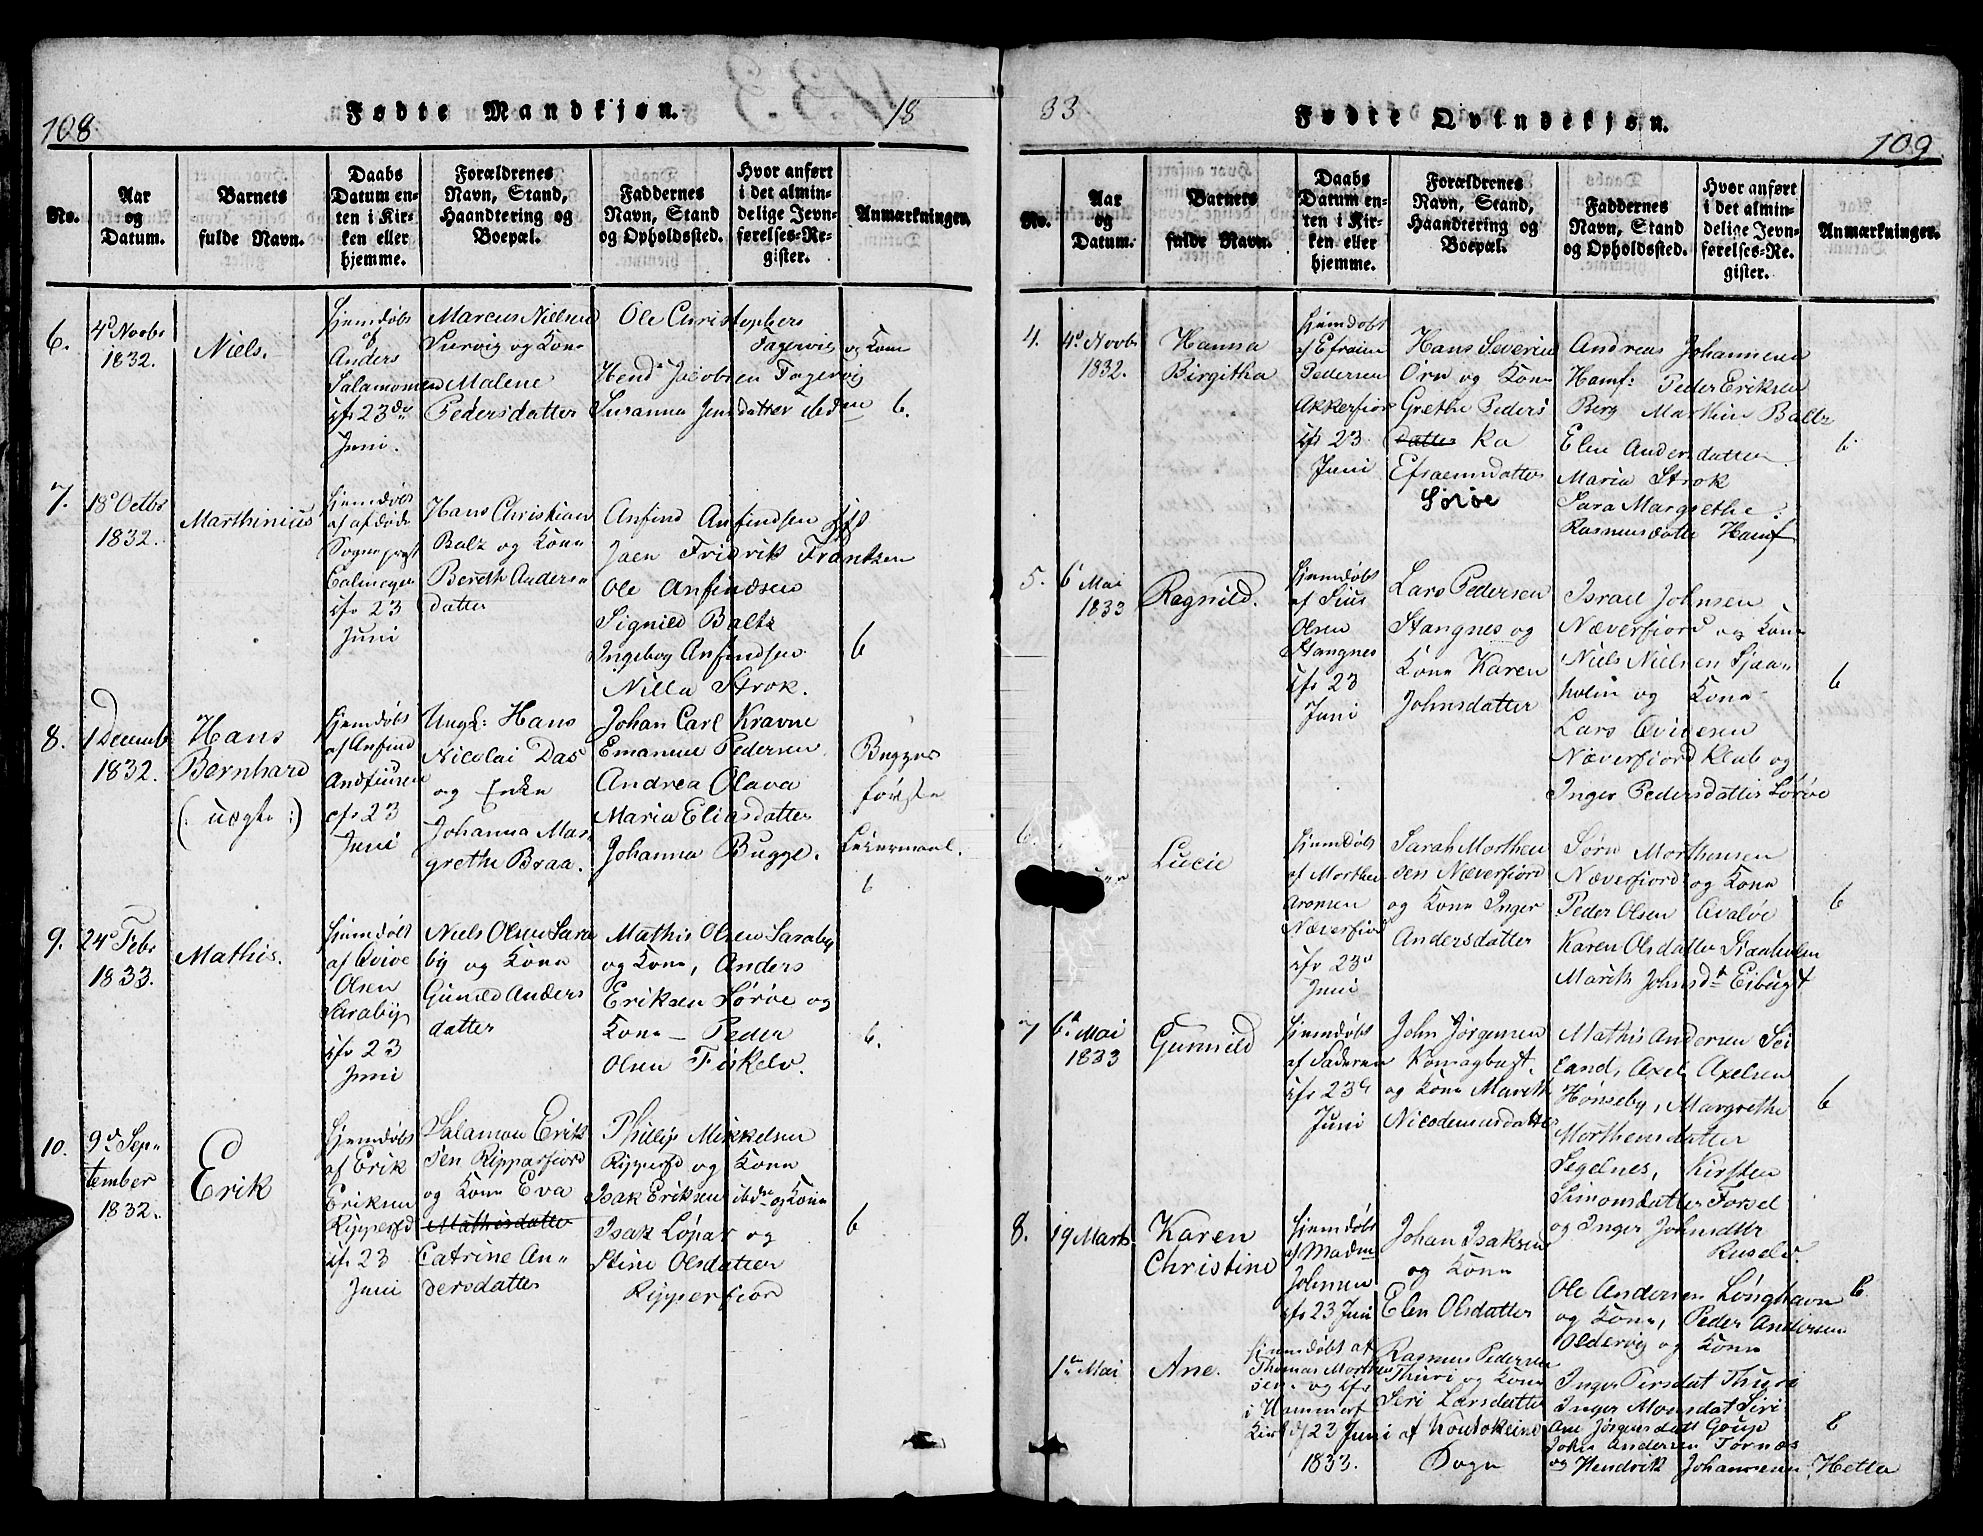 108
Fødte Mandkjøn.
18
No.
Aar
og
Datum.
Barnets
fulde Navn.
Daabs
Datum en-
ten i Kir-
ken eller
hjemme.
Forældrenes
Navn, Stand,
Haandtering og
Boepæl.
Faddernes
Navn, Stand
og Opholdssted.
Hvor anført
i det almin-
delige Jevn-
førelses-Re-
gister.
Anmærkninger.
6.
4de Novbr
1832.
Niels.
hjemdøbt
af
Anders
Salamonsen
ifr 23de
Juni.
Marcus Nielsen
og Kone
Malene
Pedersdatter
Ole Christophers
Fagervig og Kone
Hend: Jacobsen Fagervig
Susanna Jensdatter ibdm
6.
7.
18de Octbr
1832.
Marthinius
hjemdøbt
af afdøde
Sogneprest
ifr 23
Juni
Hans Christian
Balz og Kone
Bereth Anders-
datter
Anfind Anfindsen
Jaen Fridrik Frantzen
Ole Anfindsen
Signild Baltz
Ingebog Anfindsen
Nilla Strok.
6
8.
1 Decemb
1832.
Hans
Bernhard
(: uægte :)
hjemdøbt
af Anfind
Andfinsen
ifr 23
Juni
Ungk: Hans
Nicolai Das
og Enke
Johanna Mar-
grethe Braa.
Johan Carl Kravne
Emanuel Pedersen
Andrea Olava
Maria Eliasdatter
Johanna Bugge.
Bugges
første
Leiermaal.
6
9.
24de Febr
1833.
Mathis.
hjemdøbt
af Qvive
Olsen
Saraby
ifr 23
Juni
Niels Olsen Sara
by og Kone
Gunild Anders
datter
Mathis Olsen Saraby
og Kone, Anders
Eriksen Sørøe og
Kone – Peder
Olsen Fiskelv.
6.
10.
9de Sep-
tember
1832.
Erik
hjemdøbt
af Erik
Eriksen
Ripperfd
ifr 23
Juni
Salamon Erik
sen Ripparfiord
og Kone Eva
Mathisdatter
Catrine An-
dersdatter
Phillip Mikkelsen
Ripperfd og Kone
Isak Eriksen ibdm og Kone
Isak Løpar og
Stine Olsdatter
Ripperfiord
6
33
Fødte Qvindekjøn.
109
No.
Aar
og
Datum.
Barnets
fulde Navn.
Daabs
Datum en-
ten i Kir-
ken eller
hjemme.
Forældrenes
Navn, Stand,
Haandtering og
Boepæl.
Faddernes
Navn, Stand
og Opholdssted.
Hvor anført
i det almin-
delige Jevn-
førelses-Re-
gister.
Anmærkninger.
4.
4de Novbr
1832.
Hanna
Birgitha
hjemdøbt
af Efraim
Pedersen
Akkerfior
ifr 23
Juni
Hans Severin
Orn og Kone
Grethe Peders
datter Ka
Efraemsdatter
Sørøe
Andreas Johannesen
Hamf: Peder Eriksen
Berg Marthin Baltz
Elen Andersdatter
Maria Strok
Sara Margrethe
Rasmusdatter Hamf
6
5.
6 Mai
1833
Ragnild.
hjemdøbt
af Sius
Olsen
Stangnes
ifr 23
Juni
Lars Pedersen
Stangnes og
Kone Karen
Johnsdatter
Israel Johnsen
Næverfiord og Kone
Niels Nielsen Sjaa-
holm og Kone
Lars Qvivesen
Næverfiord Klub og
Inger Pedersdatter Sørøe
6
6.
Lucie
hjemdøbt
af Morthen
Aronsen
Næverfiord
ifr 23de
Juni
Sarah Morthen
sen Næverfiord
og Kone Inger
Andersdatter
Sørn Morthensen
Næverfiord og Kone
Peder Olsen Qvaløe
Karen Olsdatter Siaaholm
Marith Johnsdtr Eibugt
6
7
6te Mai
1833
Gunnild
hjemdøbt
af Faderen
ifr 23de
Juni
John Jørgensen
Komagbugt.
og Kone Marith
Nicodemusdatter
Mathis Andersen Sei
land, Axel Axelsen
Hønseby, Margrethe
Morthensdatter
Segelnes, Kirsten
Simonsdatter Forsel
og Inger Johnsdtr
Russelv
6
8.
19 Marts
Karen
Christine
hjemdøbt
af Madm
Johnsen
ifr 23 Juni
Johan Isaksen
og Kone
Elen Olsdatter
Ole Andersen Longhavn
og Kone, Peder Andersen
Oldervig og Kone
6
1te Mai
Ane.
hjemdøbt af
Thomas Morthen
sen og ifr
i Hammerf
Kirke d 23 Juni
1833.
Rasmus Pedersen
Thuri og Kone
Seri Larsdatter
af Koutokeino
Sogn
Inger Persdat Thuri
Inger Monsdat Siri
Ane Jørgensdatt Goup
John Andersen Tornæs
og Hendrik Johannesen Hetta
6